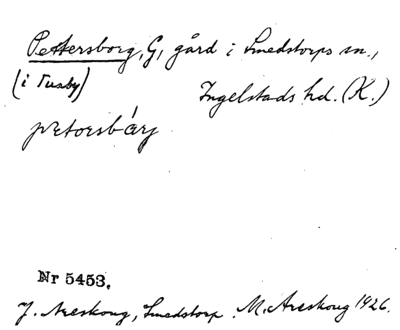 Pettersborg, G, gård i Smedstorps sn.,
(i Tusby) Ingelstads hd. (K.)
petorsbárj
Nr 5453.
J. Areskoug, Smedstorp. M. Areskoug 1926.